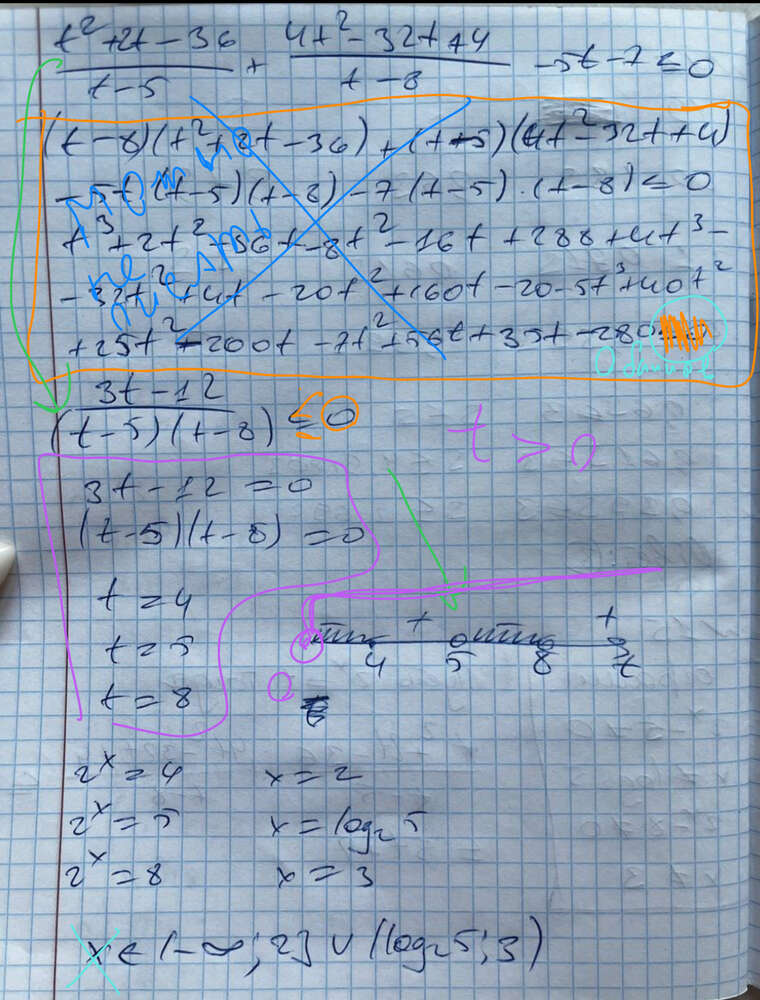 (t²+2t-36)/(t-5) + (4t²-32t+4)/(t-8) -5t-7≤0
(t-8)(t²+2t-36)+(t-5)(4t²-32t+4)
-5t(t-5)(t-8)-7(t-5)·(t-8)≤0
t³+2t²-36t-8t²-16t+288+4t³-
-32t²+4t-20t²+160t-20-5t³+40t²
+25t²-200t-7t²+56t+35t-280
можно не
(3t-12)/((t-5)(t-8)) ≤0
t>0
3t-12=0
(t-5)(t-8)=0
t=4
t=5
t=8
+ +
4 5 8 t
0
2ˣ=4 x=2
2ˣ=5 x=log₂5
2ˣ=8 x=3
x∈(-∞;2]∪(log₂5;3)